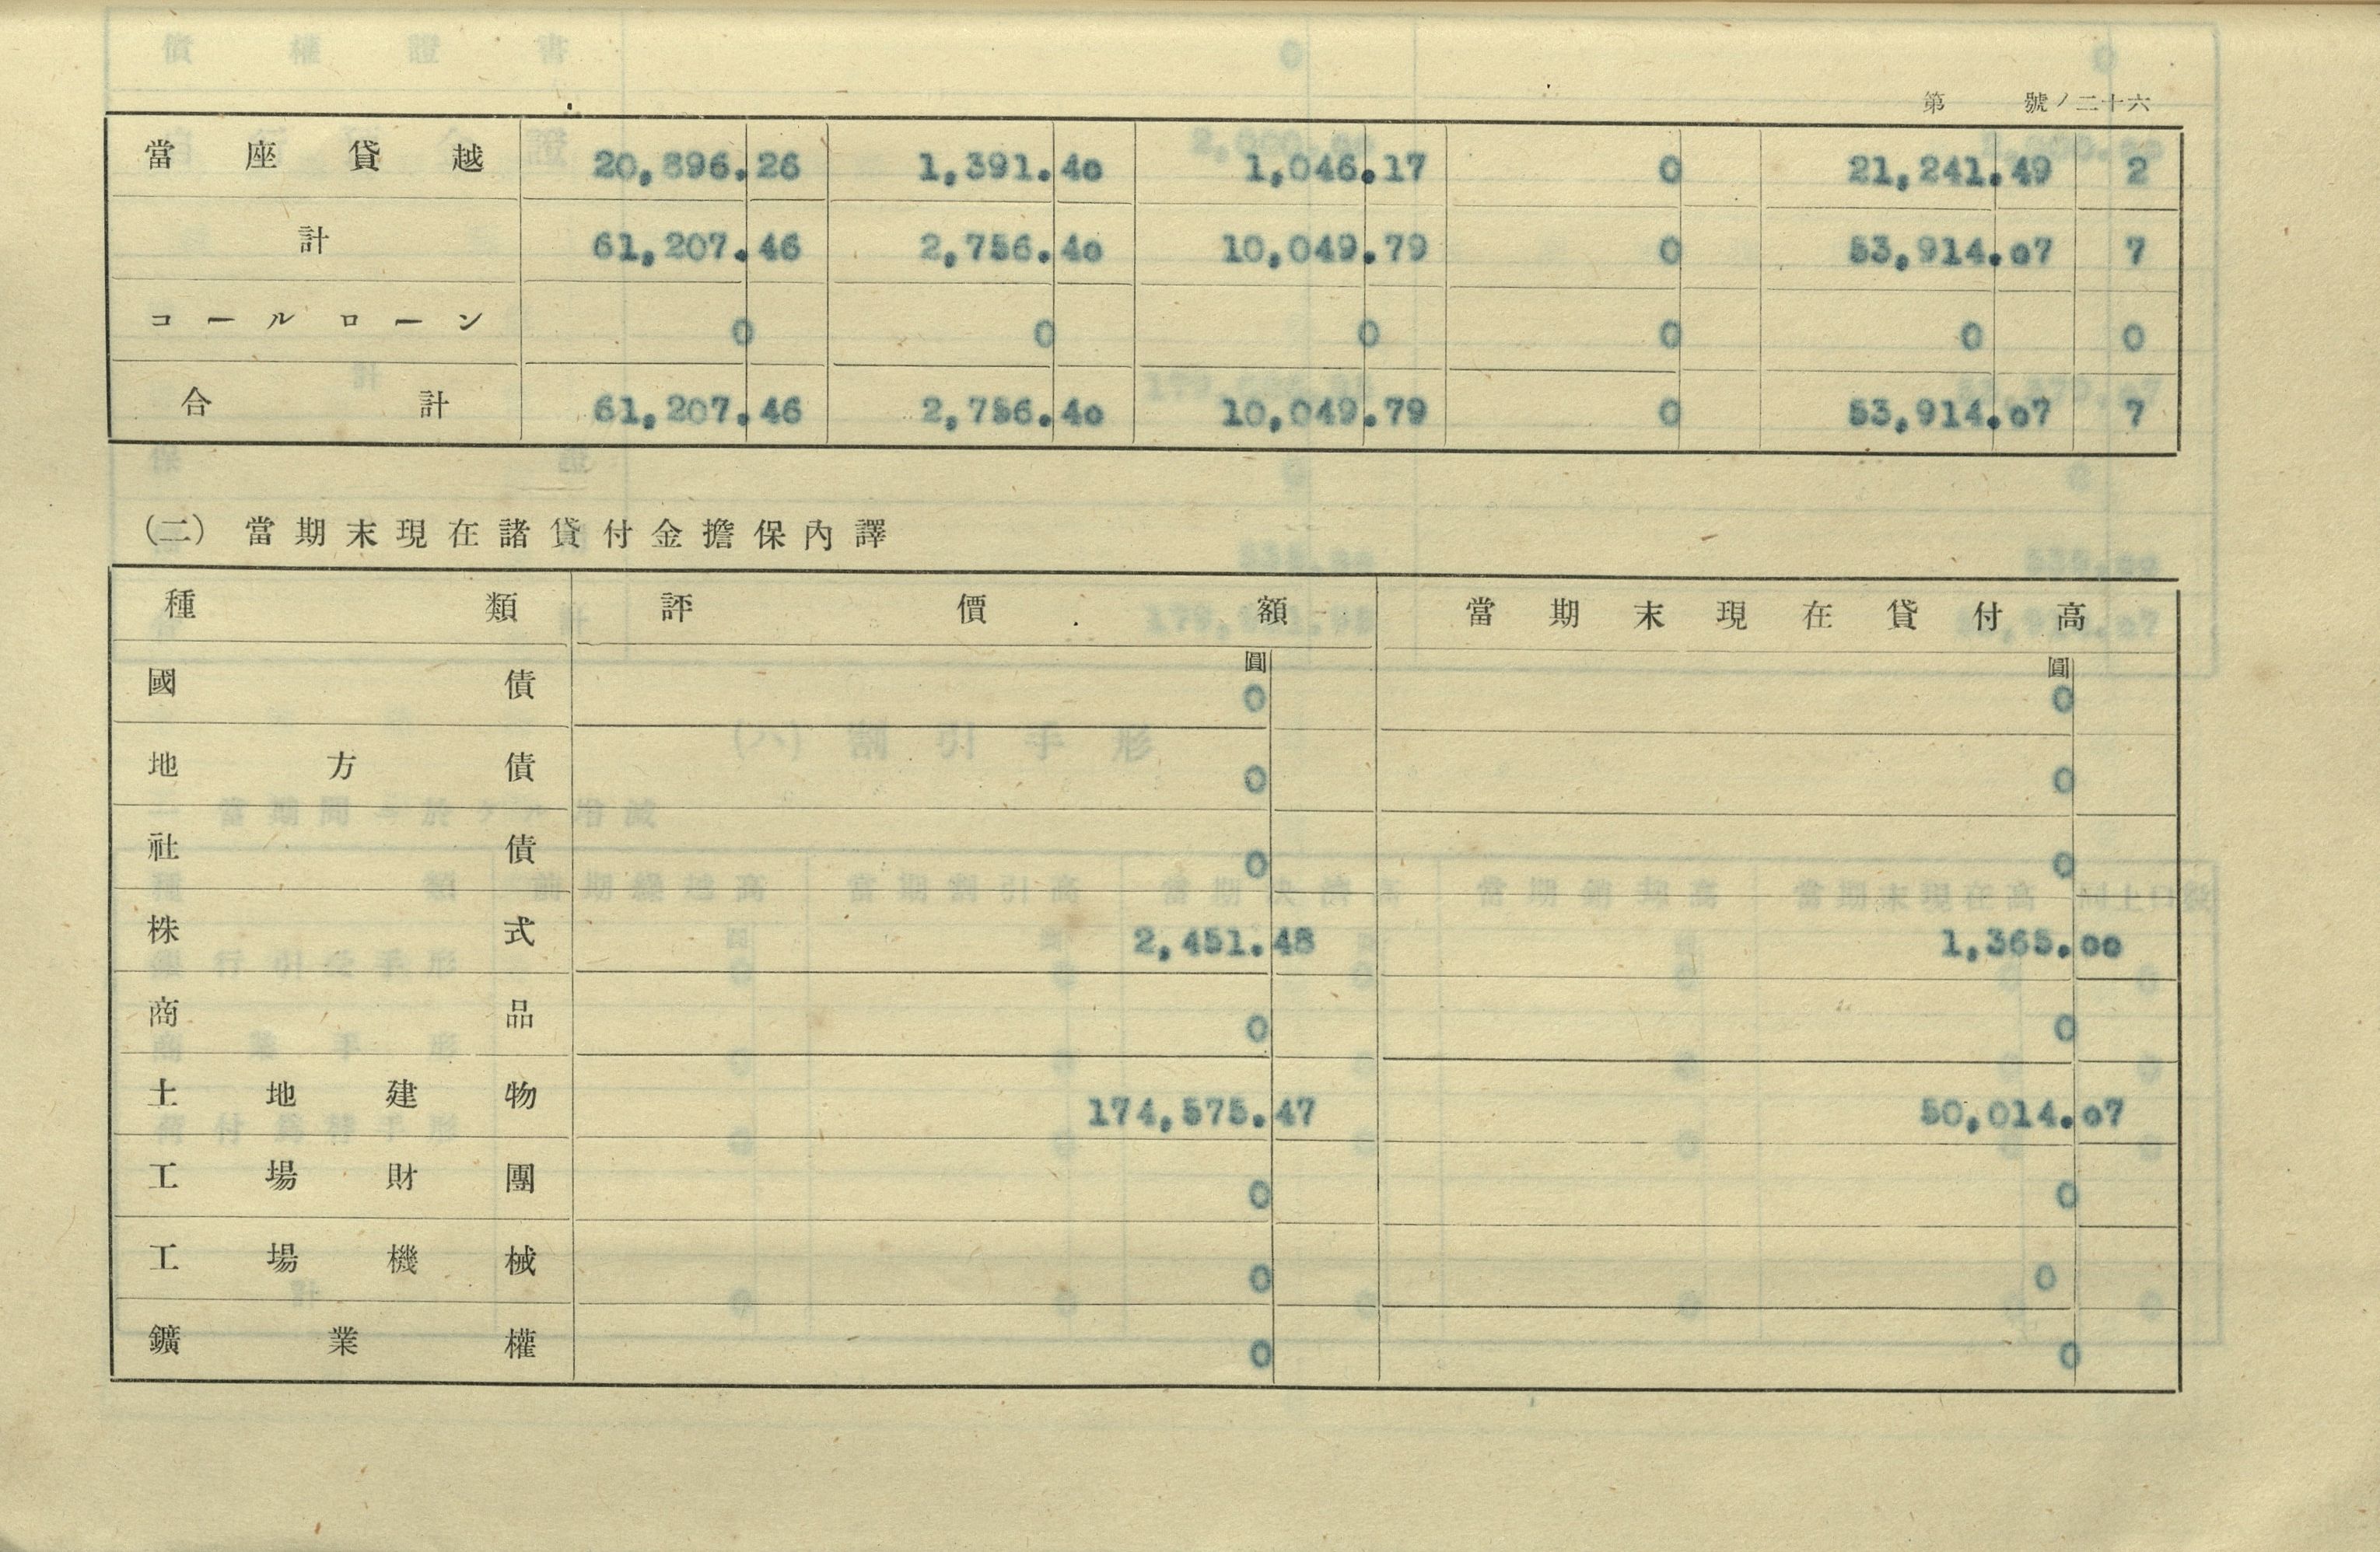 第 號ノ二十六
當座貸越 20,896.26 1,391.40 1,046.17 0 21,241.49 2
計 61,207.46 2,756.40 10,049.79 0 53,914.07 7
コールローン 0 0 0 0 0 0
合計 61,207.46 2,756.40 10,049.79 0 53,914.07 7
(二) 當期末現在諸貸付金擔保內譯
種類 評價額 當期末現在貸付高
圓 圓
國債 0 0
地方債 0 0
社債 0 0
株式 2,451.48 1,365.00
商品 0 0
土地建物 174,575.47 50,014.07
工場財團 0 0
工場機械 0 0
鑛業權 0 0